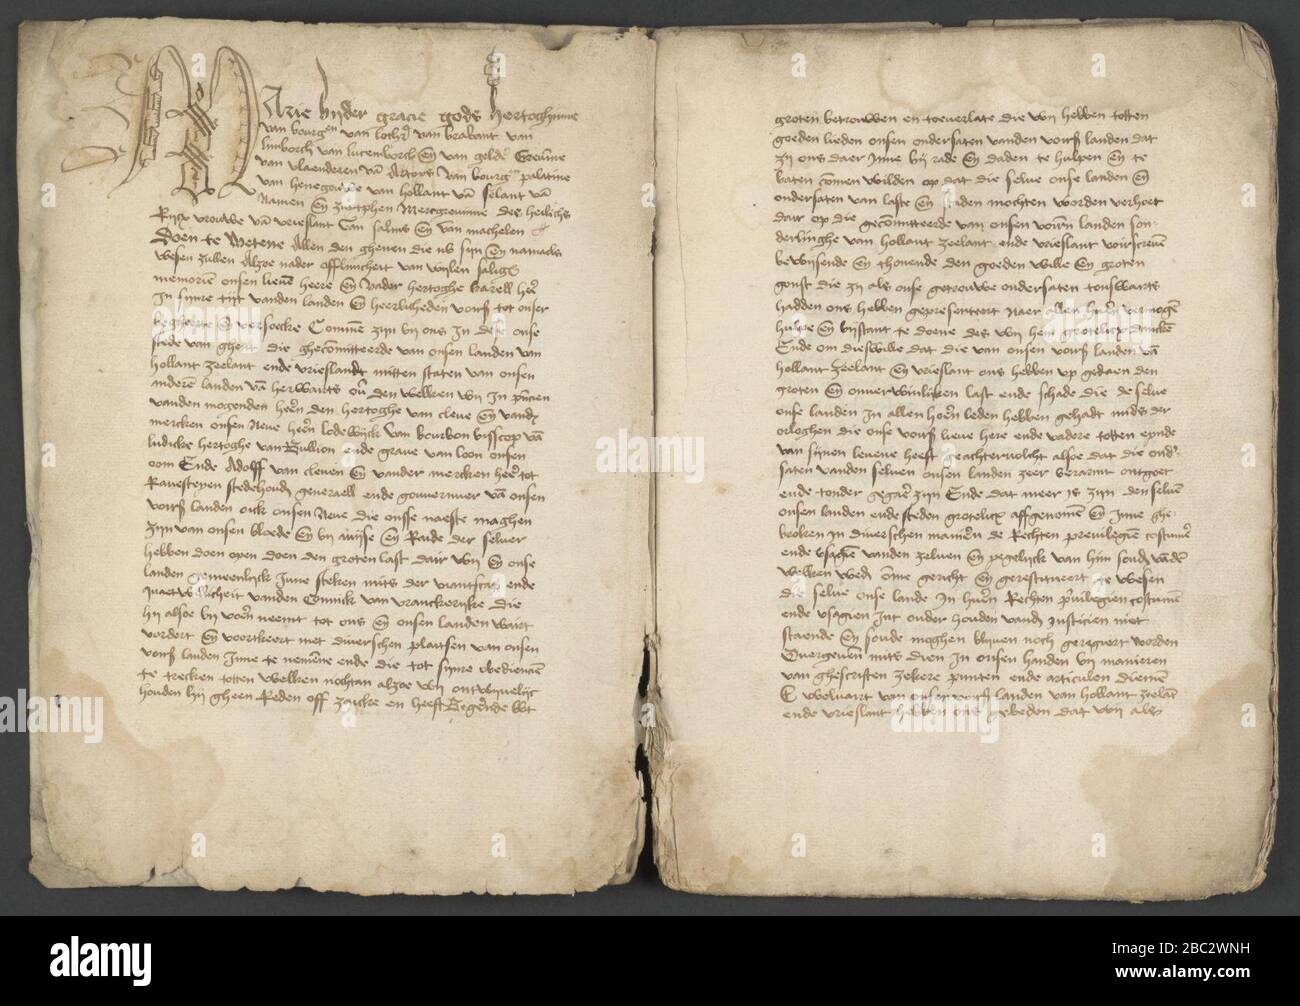 Marie bijder gracie gods hertoghinne
van bourgen van lothr van brabant van
limborch van lucemborch en van gelre Grevinne
van vlaenderen van Artoys van bourgen palatine
van henegouwe van hollant van selant van
Namen en zuytphen Mercgrevinne des heilichs
Rijcx vrouwe van vrieslant van salins en van machelen
Doen te wetene Allen den ghenen die nu sijn en namaels
wesen zullen Alzoe nader afflivicheit van wijlen salig
memorien onsen lieven heere en vader hertoghe karell
In sijnre tijt vanden landen en heerlicheden vorss tot onser
begheerte en versoecke Commen zijn bij ons In dese onse
stede van ghent die ghecommitteerde van onsen landen van
hollant zeelant ende vrieslandt mitten staten van onsen
anderen landen van herwarts over den welken wij In presencien
vanden mogenden heren den hertoghe van cleve en vander
mercken onsen Neve heren lodewijck van bourbon bisscop van
ludicke hertoghe van Bullion ende grave van loon onsen
oom Ende Adolff van cleven en vander mercken heer tot
Ravesteyen stedehouder generaell ende gouverneur van onsen
vorss landen oick onsen Neve die onsse naeste maghen
zijn van onsen bloede en bij avijse en Raide der selver
hebben doen open doen den groten last dair wij en onse
landen gemeenlijck Inne steken mits der viantscap ende
quaetwillicheit vanden Coninck van vranckerijke die
hij alsoe bij voeren neemt tot ons en onsen landen wart
vordert en voortkeert met diverschen plaetsen van onsen
vorss landen Inne te nemene ende die tot sijnre obediencien
te trecken totten welken nochtan alzoe wij ontwijvelijc
houden hij gheen Reden off zaicke en heeft
groten betrouwen en toeverlate die wij hebben totten
goeden lieden onsen ondersaten vanden vorss landen dat
zij ons daer Inne bij rade en daden te hulpen en te
baten comen wilden op dat die selve onse landen en
ondersaten van laste en scaden mochten worden verhoet
dair op die gecommitteerde van onsen landen son
derlinghe van hollant zeelant ende vrieslant voirscreven
bewijsende en thonende den goeden wille en groten
gonst die zij als onse getrouwe ondersaten tonswarts
hadden ons hebben gepresenteert naer allen huere vermogen
hulpe en bijstant te doene des wij hem grotelicx dancken
Ende om dieswille dat die van onsen vorss landen van
hollant zeelant en vrieslant ons hebben op gedaen den
groten en onverwinliken last ende schade die de selve
onse landen In allen hoeren leden hebben gehadt mids der
orloghen die onse vorss lieve here ende vadere totten eynde
van sijnen levene heeft geachtervolcht alsoe dat die onder
saten vanden selven onsen landen zeer verarmt ontgoet
ende tonder gegaen zijn Ende dat meer is zijn den selven
onsen landen ende steden grotelicx affgenomen en Inne ghe
broken in diverschen manieren de Rechten previlegien costumen
ende usagien vanden zelven en yegelijck van him
welken wed Ome gericht en gerestitueert te wesen
die selve onse lande In huere Rechten privilegien costumen
ende usagien Int onder houden vander Justicien niet
staende en soude moghen blijven noch geregiert worden
Overgeven mits dien In onsen handen bij manieren
van ghescriften zekere punten ende articulen dienende
ter welvairt van onsen vorss landen van hollant zeelant
ende vrieslant hebben ons gebeden dat wij als
alamy
2BC2WNH
Image ID: 2BC2WNH
www.alamy.com